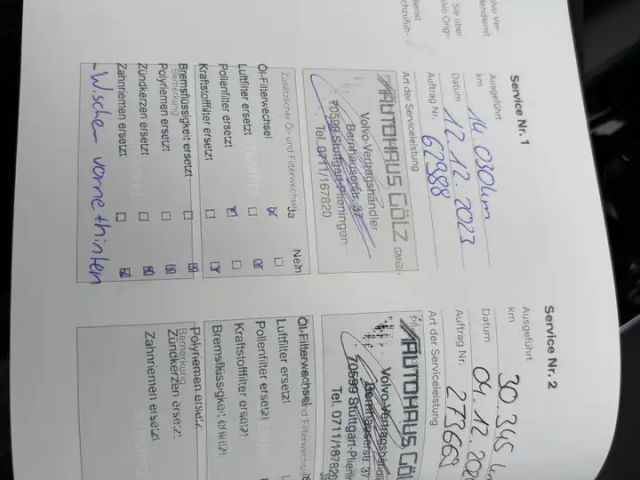 Service Nr. 1
Ausgeführt
km 14.030km
Datum 12.12.2023
Auftrag Nr. 62988
Art der Serviceleistung
AUTOHAUS GÖLZ GMBH
Volvo-Vertragshändler
Bernhauserstr. 37
70599 Stuttgart-Plieningen
Tel. 0711/167820
Zusätzlicher Öl- und Filterwechsel Ja Nein
Öl-Filterwechsel
Luftfilter ersetzt
Pollenfilter ersetzt
Kraftstofffilter ersetzt
Bremsflüssigkeit ersetzt
Bemerkung
Polyriemen ersetzt
Zündkerzen ersetzt
Zahnriemen ersetzt
- Wischer vorne + hinten
Service Nr. 2
Ausgeführt
km 30.345 km
Datum 04.12.
Auftrag Nr. 273669
Art der Serviceleistung
AUTOHAUS GÖL
Volvo-Vertragshänd
Bernhauserstr. 37
70599 Stuttgart-Plien
Tel. 0711/167820
Öl-Filterwechsel
Luftfilter ersetzt
Pollenfilter ersetzt
Kraftstofffilter ersetzt
Bremsflüssigkeit ersetzt
Polyriemen ersetzt
Bemerkung
Zündkerzen ersetzt
Zahnriemen ersetzt